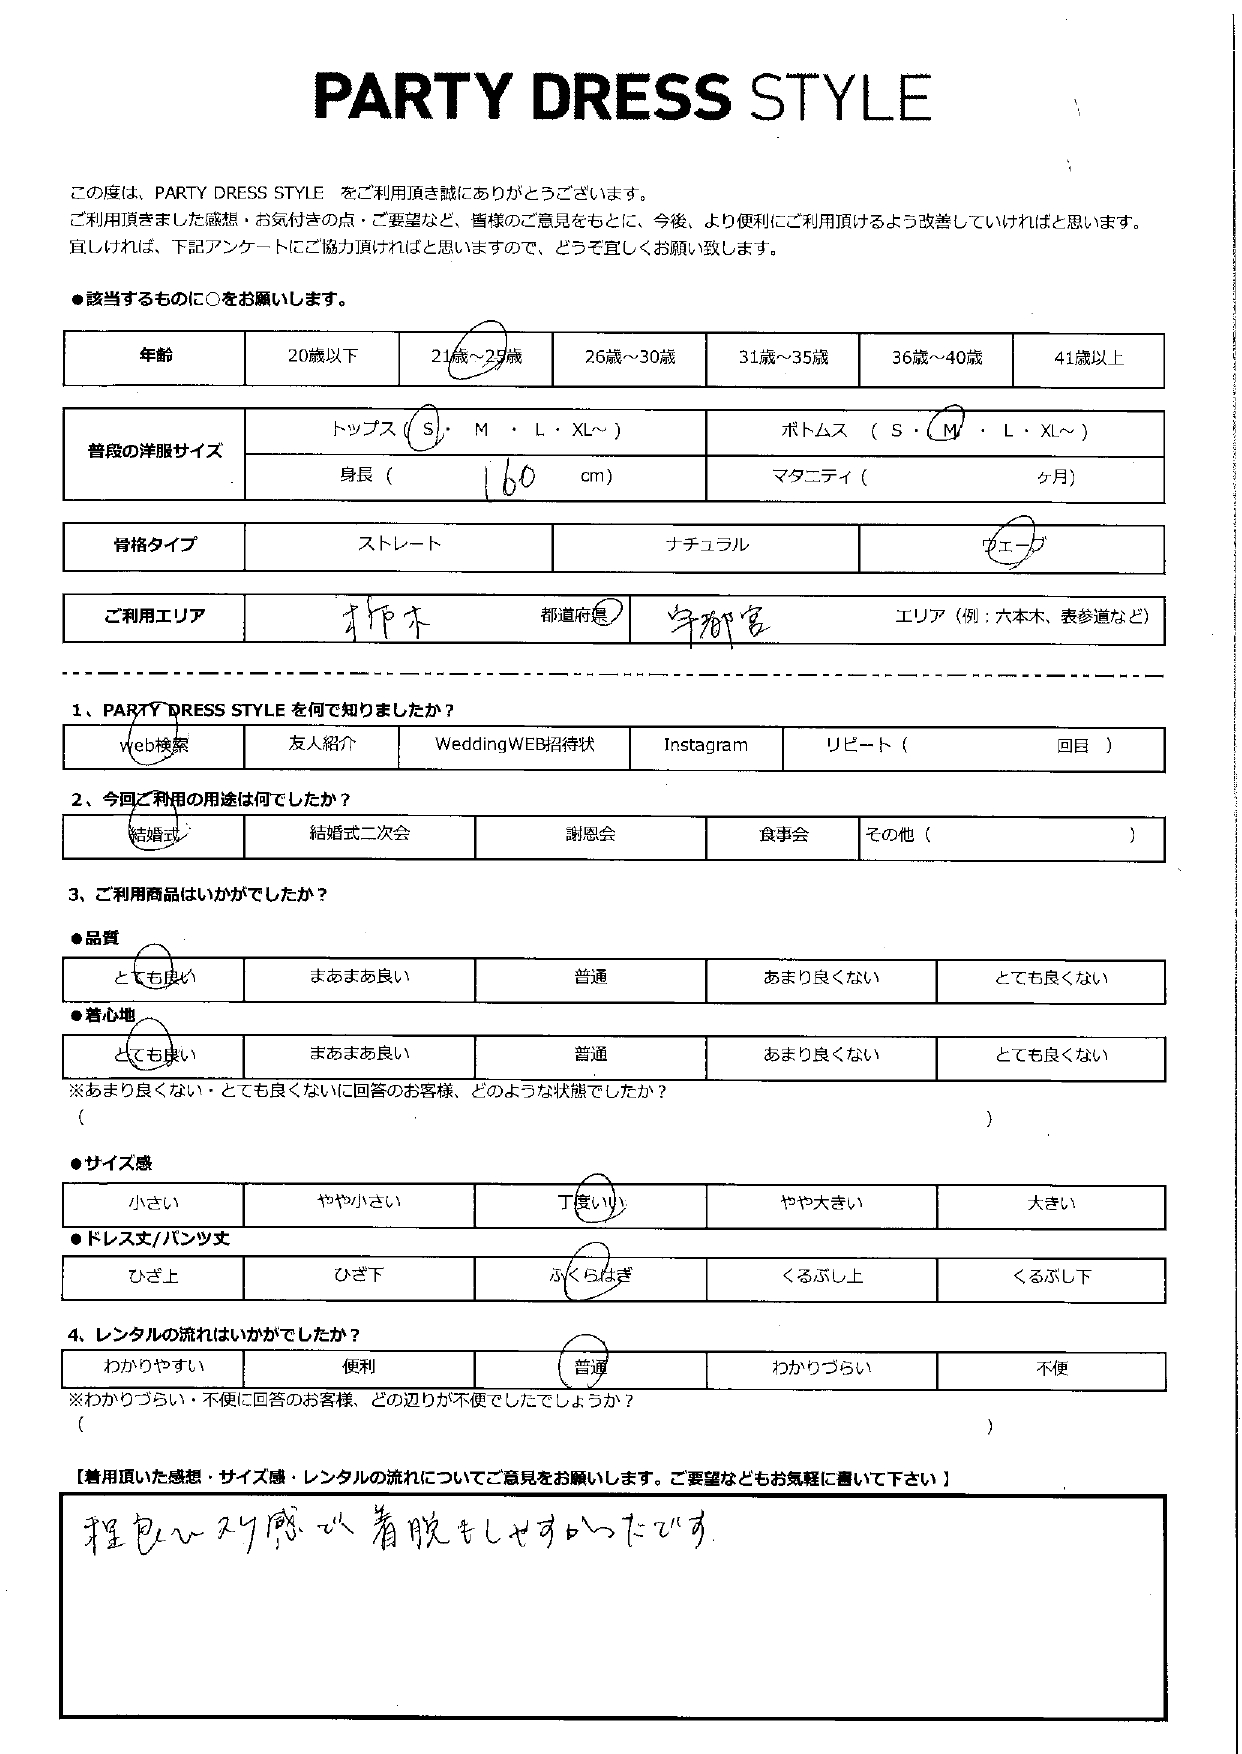 PARTY DRESS STYLE
この度は、PARTY DRESS STYLE をご利用頂き誠にありがとうございます。
ご利用頂きました感想・お気付きの点・ご要望など、皆様のご意見をもとに、今後、より便利にご利用頂けるよう改善していければと思います。
宜しければ、下記アンケートにご協力頂ければと思いますので、どうぞ宜しくお願い致します。
●該当するものに○をお願いします。
年齢 20歳以下 21歳～25歳 26歳～30歳 31歳～35歳 36歳～40歳 41歳以上
普段の洋服サイズ トップス ( S ・ M ・ L ・ XL～ ) ボトムス ( S ・ M ・ L ・ XL～ )
身長 ( 160 cm) マタニティ ( ヶ月)
骨格タイプ ストレート ナチュラル ウェーブ
ご利用エリア 栃木 都道府県 宇都宮 エリア（例：六本木、表参道など）
1、PARTY DRESS STYLE を何で知りましたか？
web検索 友人紹介 WeddingWEB招待状 Instagram リピート ( 回目 )
2、今回ご利用の用途は何でしたか？
結婚式 結婚式二次会 謝恩会 食事会 その他 ( )
3、ご利用商品はいかがでしたか？
●品質
とても良い まあまあ良い 普通 あまり良くない とても良くない
●着心地
とても良い まあまあ良い 普通 あまり良くない とても良くない
※あまり良くない・とても良くないに回答のお客様、どのような状態でしたか？
( )
●サイズ感
小さい やや小さい 丁度いい やや大きい 大きい
●ドレス丈/パンツ丈
ひざ上 ひざ下 ふくらはぎ くるぶし上 くるぶし下
4、レンタルの流れはいかがでしたか？
わかりやすい 便利 普通 わかりづらい 不便
※わかりづらい・不便に回答のお客様、どの辺りが不便でしたでしょうか？
( )
【着用頂いた感想・サイズ感・レンタルの流れについてご意見をお願いします。ご要望などもお気軽に書いて下さい】
程良いユリ感で着脱もしやすかったです